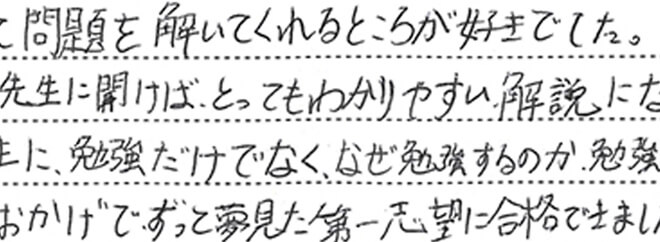 て問題を解いてくれるところが好きでした。
先生に聞けば、とってもわかりやすい解説にな
生に、勉強だけでなく、なぜ勉強するのか、勉強
おかげで、ずっと夢見た第一志望に合格できまし